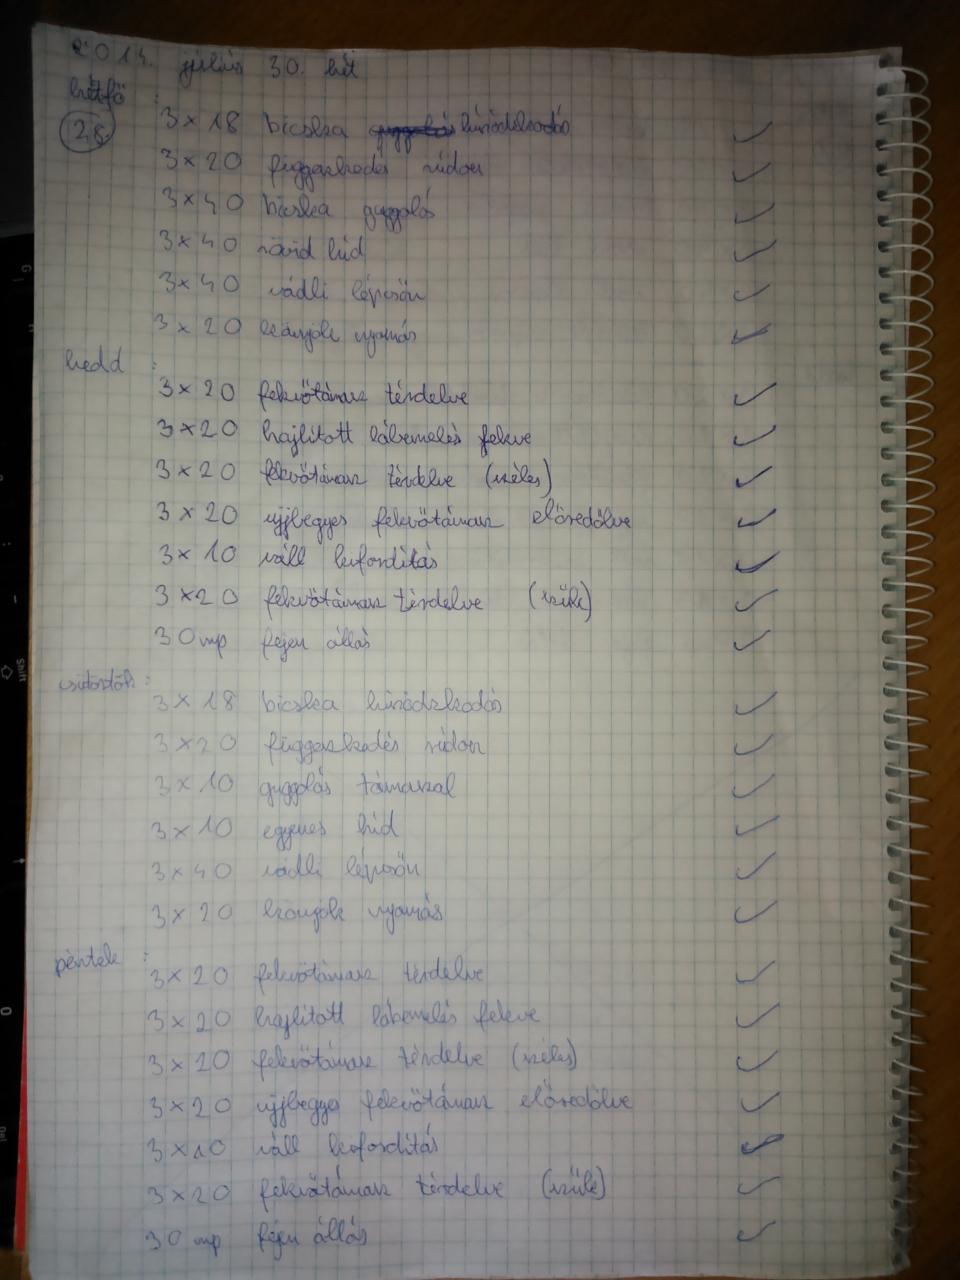 2014. július 30. hét
hétfő :
28. 3 × 18 bicska húzódzkodás
3 × 20 függeszkedés rúdon
3 × 40 bicska guggolás
3 × 40 rövid híd
3 × 40 vádli lépcsőn
3 × 20 könyök nyomás
kedd :
3 × 20 fekvőtámasz térdelve
3 × 20 hajlított lábemelés fekve
3 × 20 fekvőtámasz térdelve (széles)
3 × 20 ujjbegyes fekvőtámasz előredőlve
3 × 10 váll kifordítás
3 × 20 fekvőtámasz térdelve (szűk)
30 mp fejen állás
csütörtök :
3 × 18 bicska húzódzkodás
3 × 20 függeszkedés rúdon
3 × 10 guggolás támasszal
3 × 10 egyenes híd
3 × 40 vádli lépcsőn
3 × 20 könyök nyomás
péntek :
3 × 20 fekvőtámasz térdelve
3 × 20 hajlított lábemelés fekve
3 × 20 fekvőtámasz térdelve (széles)
3 × 20 ujjbegyes fekvőtámasz előredőlve
3 × 10 váll kifordítás
3 × 20 fekvőtámasz térdelve (szűk)
30 mp fejen állás